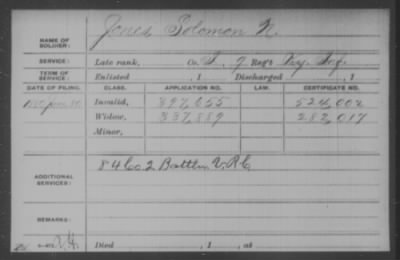 NAME OF SOLDIER: Jones Solomon N.
SERVICE: Late rank, Co. I, 7 Reg't Ky. Inf.
TERM OF SERVICE: Enlisted , 1 Discharged , 1
DATE OF FILING. CLASS. APPLICATION NO. LAW. CERTIFICATE NO.
Invalid, 897,655 524,002
Widow, 337,889 282,017
Minor,
ADDITIONAL SERVICES: 84 Co 2 Battln V.R.C
REMARKS:
Died , 1 , at